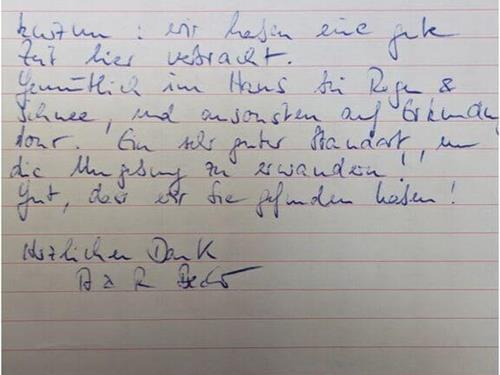 kurzum : wir haben eine gute
Zeit hier verbracht.
Gemütlich im Haus bei Regen &
Schnee, und ansonsten auf Erkundungs
tour. Ein sehr guter Standort, um
die Umgebung zu erwandern!
Gut, dass wir Sie gefunden haben!
Herzlichen Dank
A & R